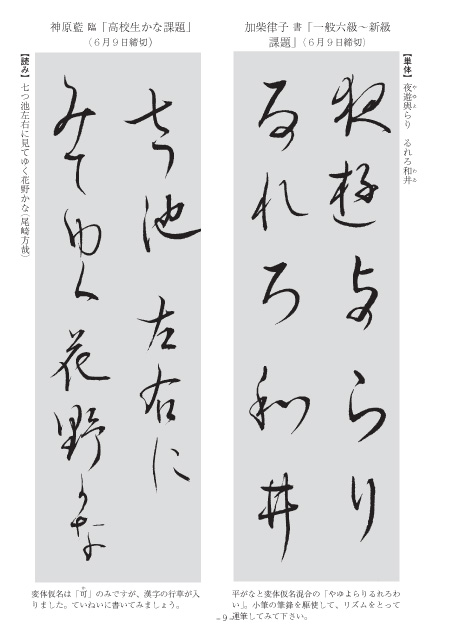 加柴律子 書「一般六級〜新級
課題」(6月9日締切)
【単体】 夜遊輿らり るれろ和井
や ゆ よ わ ゐ
夜遊与らり
るれろ和井
平がなと変体仮名混合の「やゆよらりるれろわ
い」。小筆の筆鋒を駆使して、リズムをとって
運筆してみて下さい。
神原藍 臨「高校生かな課題」
(6月9日締切)
【読み】 七つ池左右に見てゆく花野かな(尾崎方哉)
七つ池 左右に
みてゆく花野可な
変体仮名は「可」のみですが、漢字の行草が入
か
りました。ていねいに書いてみましょう。
- 9 -